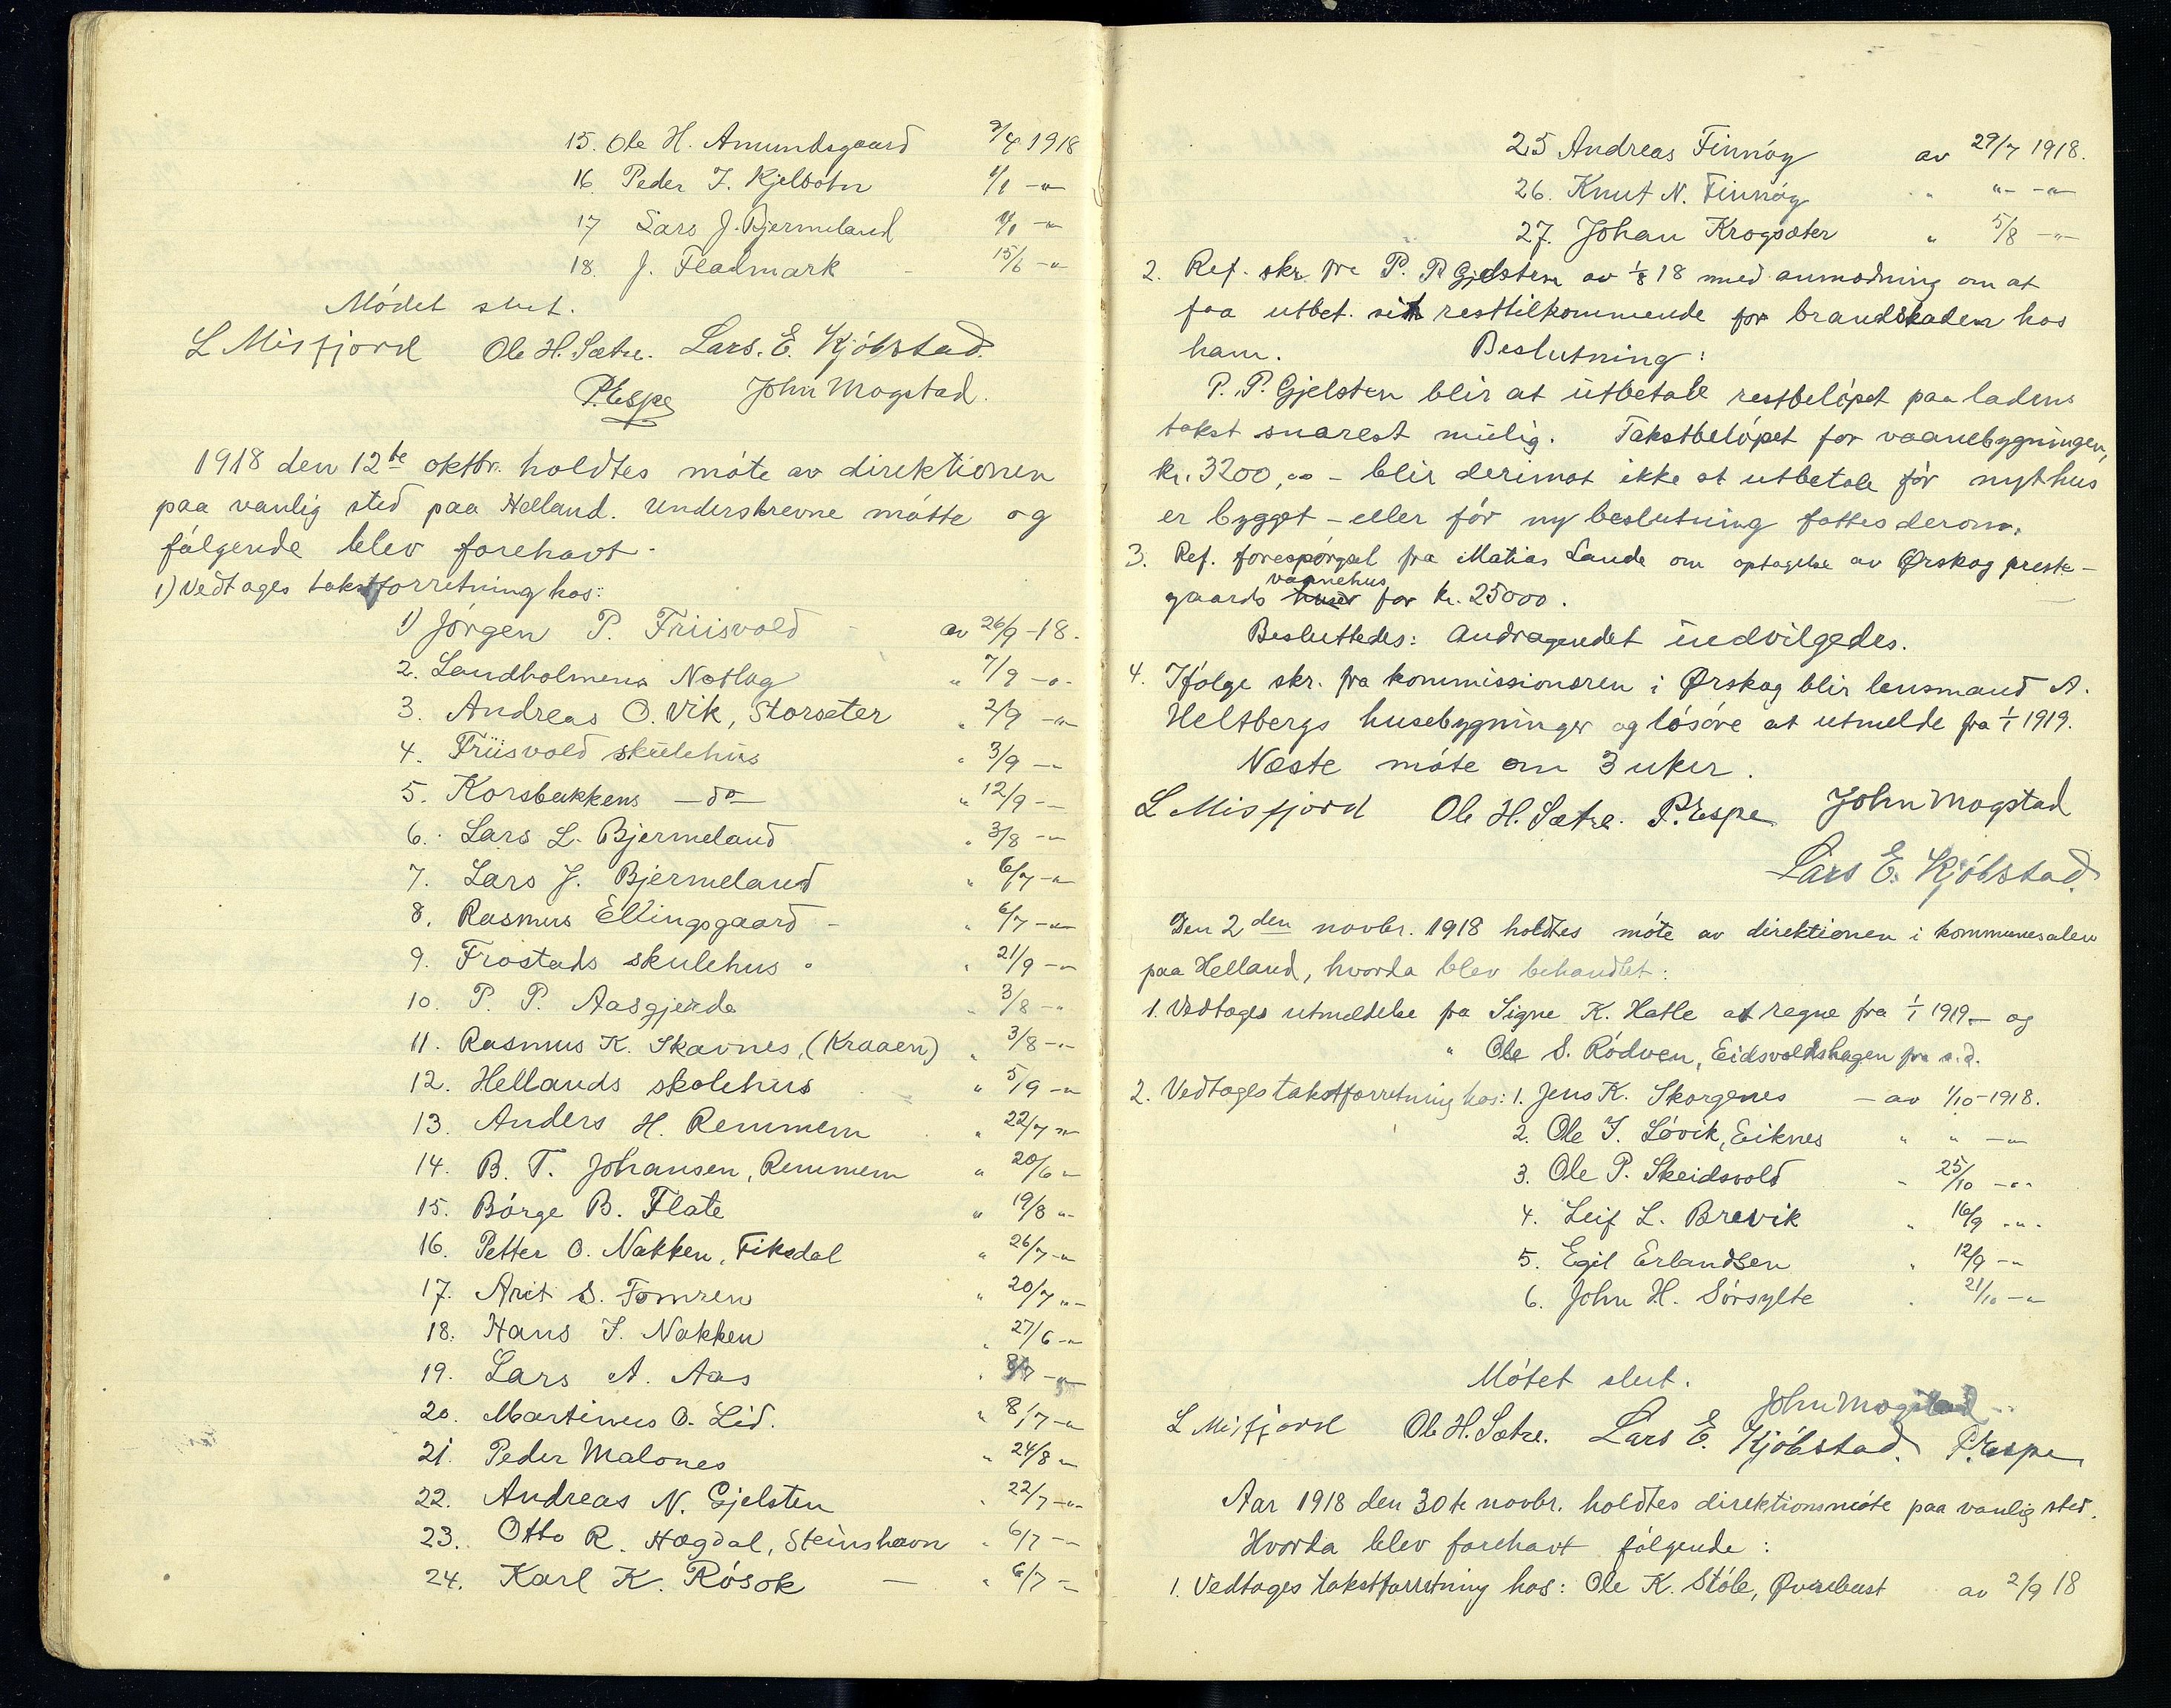 15. Ole H. Amundsgaard 3/4 1918
16. Peder J. Kjelbotn 1/1 -"-
17 Lars J. Bjermeland -"-
18. J. Fladmark - 15/6 -"-
Mödet slut.
L Misfjord Ole H. Sætre. Lars. E. Kjöbstad.
P. Espe John Mogstad.
1918 den 12te oktbr. holdtes möte av direktionen
paa vanlig sted paa Helland. Underskrevne mötte og
fölgende blev forehavt.
1) Vedtages takstforretning hos:
1) Jörgen P. Friisvold - av 26/9 -18.
2. Landholmens Notlag " 7/9 -"-
3. Andreas O. Vik, Storseter " 2/9 -"-
4. Friisvold skulehus " 3/9 -"-
5. Korsbakkens - do - " 12/9 -"-
6. Lars L. Bjermeland " 3/8 -"-
7. Lars J. Bjermeland " 6/7 -"-
8. Rasmus Ellingsgaard - " 6/7 -"-
9. Frostads skulehus " 21/9 -"-
10. P. P. Aasgjerde " 3/8 -"-
11. Rasmus K. Skavnes, (Kraaen) " 3/8 -"-
12. Hellands skolehus " 5/9 -"-
13. Anders H. Remmem " 22/7 "
14. B. T. Johansen, Remmem " 20/6 "
15. Börge B. Flate " 19/8 "-
16. Petter O. Nakken, Fiksdal " 26/7 -"
17. Arit S. Tomren " 20/7 "-
18. Hans J. Nakken " 27/6 -"-
19. Lars A. Aas " -"-
20. Martinus O. Lid. " 8/7 -"
21. Peder Malones " 24/8 "
22. Andreas N. Gjelsten " 22/7 -"-
23. Otto R. Hægdal, Steinshavn " 6/7 -"-
24. Karl K. Rösok - " 6/7 -"
25 Andreas Finnöy av 29/7 1918.
26. Knut N. Finnöy " "- -"-
27. Johan Krogsæter " 5/8 -"-
2. Ref. skr. fra P. P. Gjelsten av 1/8 18 med anmodning om at
faa utbet. sit resttilkommende for brandskaden hos
ham. Beslutning:
P. P. Gjelsten blir at utbetale restbelöpet paa ladens
takst snarest mulig. Takstbelöpet for vaanebygningen,
kr. 3200,00 - blir derimot ikke at utbetale för nyt hus
er bygget - eller för ny beslutning fattes derom.
3. Ref. forespörgsel fra Matias Lande om optagelse av Ørskog preste-
vaanehus
gaards huser for kr. 25000.
Besluttedes: Andragendet indvilgedes.
4. Ifölge skr. fra kommissionæren i Ørskog blir lensmand A.
Heltbergs husebygninger og lösöre at utmelde fra 1/1 1919.
Næste möte om 3 uker.
L Misfjord Ole H. Sætre. P. Espe John Mogstad
Lars E. Kjöbstad.
Den 2den novbr. 1918 holdtes möte av direktionen i kommunesalen
paa Helland, hvorda blev behandlet:
1. Vedtages utmeldelse fra Signe K. Hatle at regne fra 1/1 1919 - og
" Ole S. Rödven, Eidsvoldshagen fra s.d.
2. Vedtages takstforretning hos: 1. Jens K. Skorgenes - av 1/10 - 1918.
2. Ole J. Lövik, Eiknes " " -"-
3. Ole P. Skeidsvold " 25/10 -"-
4. Leif L. Brevik " 16/9 -"-
5. Egil Erlandsen " 12/9 -"
6. John H. Sörsylte " 21/10 -"
Mötet slut.
John Mogstad
L Misfjord Ole H. Sætre. Lars E. Kjöbstad. P. Espe
Aar 1918 den 30te novbr. holdtes direktionsmöte paa vanlig sted.
Hvorda blev forehavt fölgende:
1. Vedtages takstforretning hos: Ole K. Stöle, Øverebust av 2/9 18